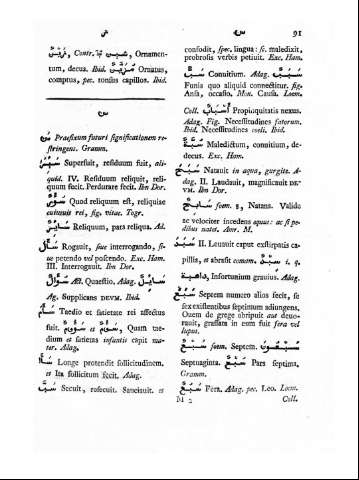 س 91
شين, Contr. Ornamen-
tum, decus. Ibid. Ornatus,
comptus, pec. tonsus capillos. Ibid.
س Praefixum futuri significationem re-
stringens. Gramm.
Superfuit, residuum fuit, ali-
quid. IV. Residuum reliquit, reli-
quum fecit. Perdurare fecit. Ibn Dor.
Quod reliquum est, reliquiae
cujusvis rei, fig. vitae. Togr.
Reliquum, pars reliqua. Ad.
Rogauit, siue interrogando, si-
ue petendo vel poscendo. Exc. Ham.
III. Interrogauit. Ibn Dor.
سؤال Act. Quaestio, Adag. سايل
Ag. Supplicans DEVM. Ibid.
Taedio et satietate rei affectus
fuit. et, Quam tae-
dium et satietas infantis cepit ma-
ter. Adag.
Longe protendit sollicitudinem.
et Ita sollicitum fecit. Adag.
Secuit, rasecuit. Sauciauit. et
confodit, spec. lingua: sc. maledixit,
probrosis verbis petiuit. Exc. Ham.
Conuitium. Adag.
Funis quo aliquid connectitur. fig.
Ansa, occasio, Mon. Causa. Locm.
Coll. أسباب Propinquitatis nexus.
Adag. Fig. Necessitudines fatorum.
Ibid. Necessitudines coeli. Ibid.
Maledictum, conuitium, de-
decus. Exc. Ham.
سبح Natauit in aqua, gurgite. A-
dag. II. Laudauit, magnificauit DE-
VM. Ibn Dor.
سابح foem. ة, Natans. Valido
ac velociter incedens equus: ac si pe-
dibus natet. Amr. M.
سبد II. Leuauit caput exstirpatis ca-
pillis, et abrasit comam. i. q.
داهية, Infortunium grauius. Adag.
سبع Septem numero alios fecit, si
sex existentibus septimum adiungens.
Ouem de grege abripuit aut deuo-
rauit, grassata in eum fuit fera vel
lupus.
سبع foem. Septem. سبعون
Septuaginta. سبع Pars septima.
Gramm.
سبع Fera. Adag. pec. Leo. Locm.
M 2 Coll.